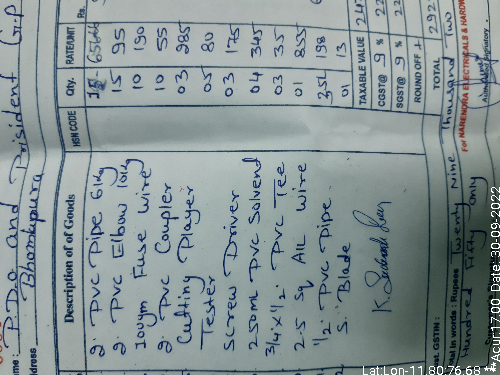 P.D.O and Prisident G.P
Bhontapura
Description of of Goods HSN CODE Qty. RATE/UNIT Rs.
2" PVC Pipe 6 Kg 15
2" PVC Elbow 10Kg 15 95
100gm Fuse wire 10 190
2" PVC Coupler 10 55
Cutting Player 03 285
Tester 05 80
Screw Driver 03 175
250ml PVC Solvend 04 345
3/4 x 1/2" PVC Tee 03 35
2.5 Sq All wire 01 855
1/2" PVC Pipe 198
S. Blade 01 13
TAXABLE VALUE
CGST@ 9 % 22
SGST@ 9 % 22
ROUND OFF ±
TOTAL 292
Total in words : Rupees Twenty Nine Thousand Two
Hundred Fifty Only
For NARENDRA ELECTRICALS & HARDW
Authorised Signatory
Lat:Lon-11.80:76.68 **
Acur:17.00, Date: 30-09-2022